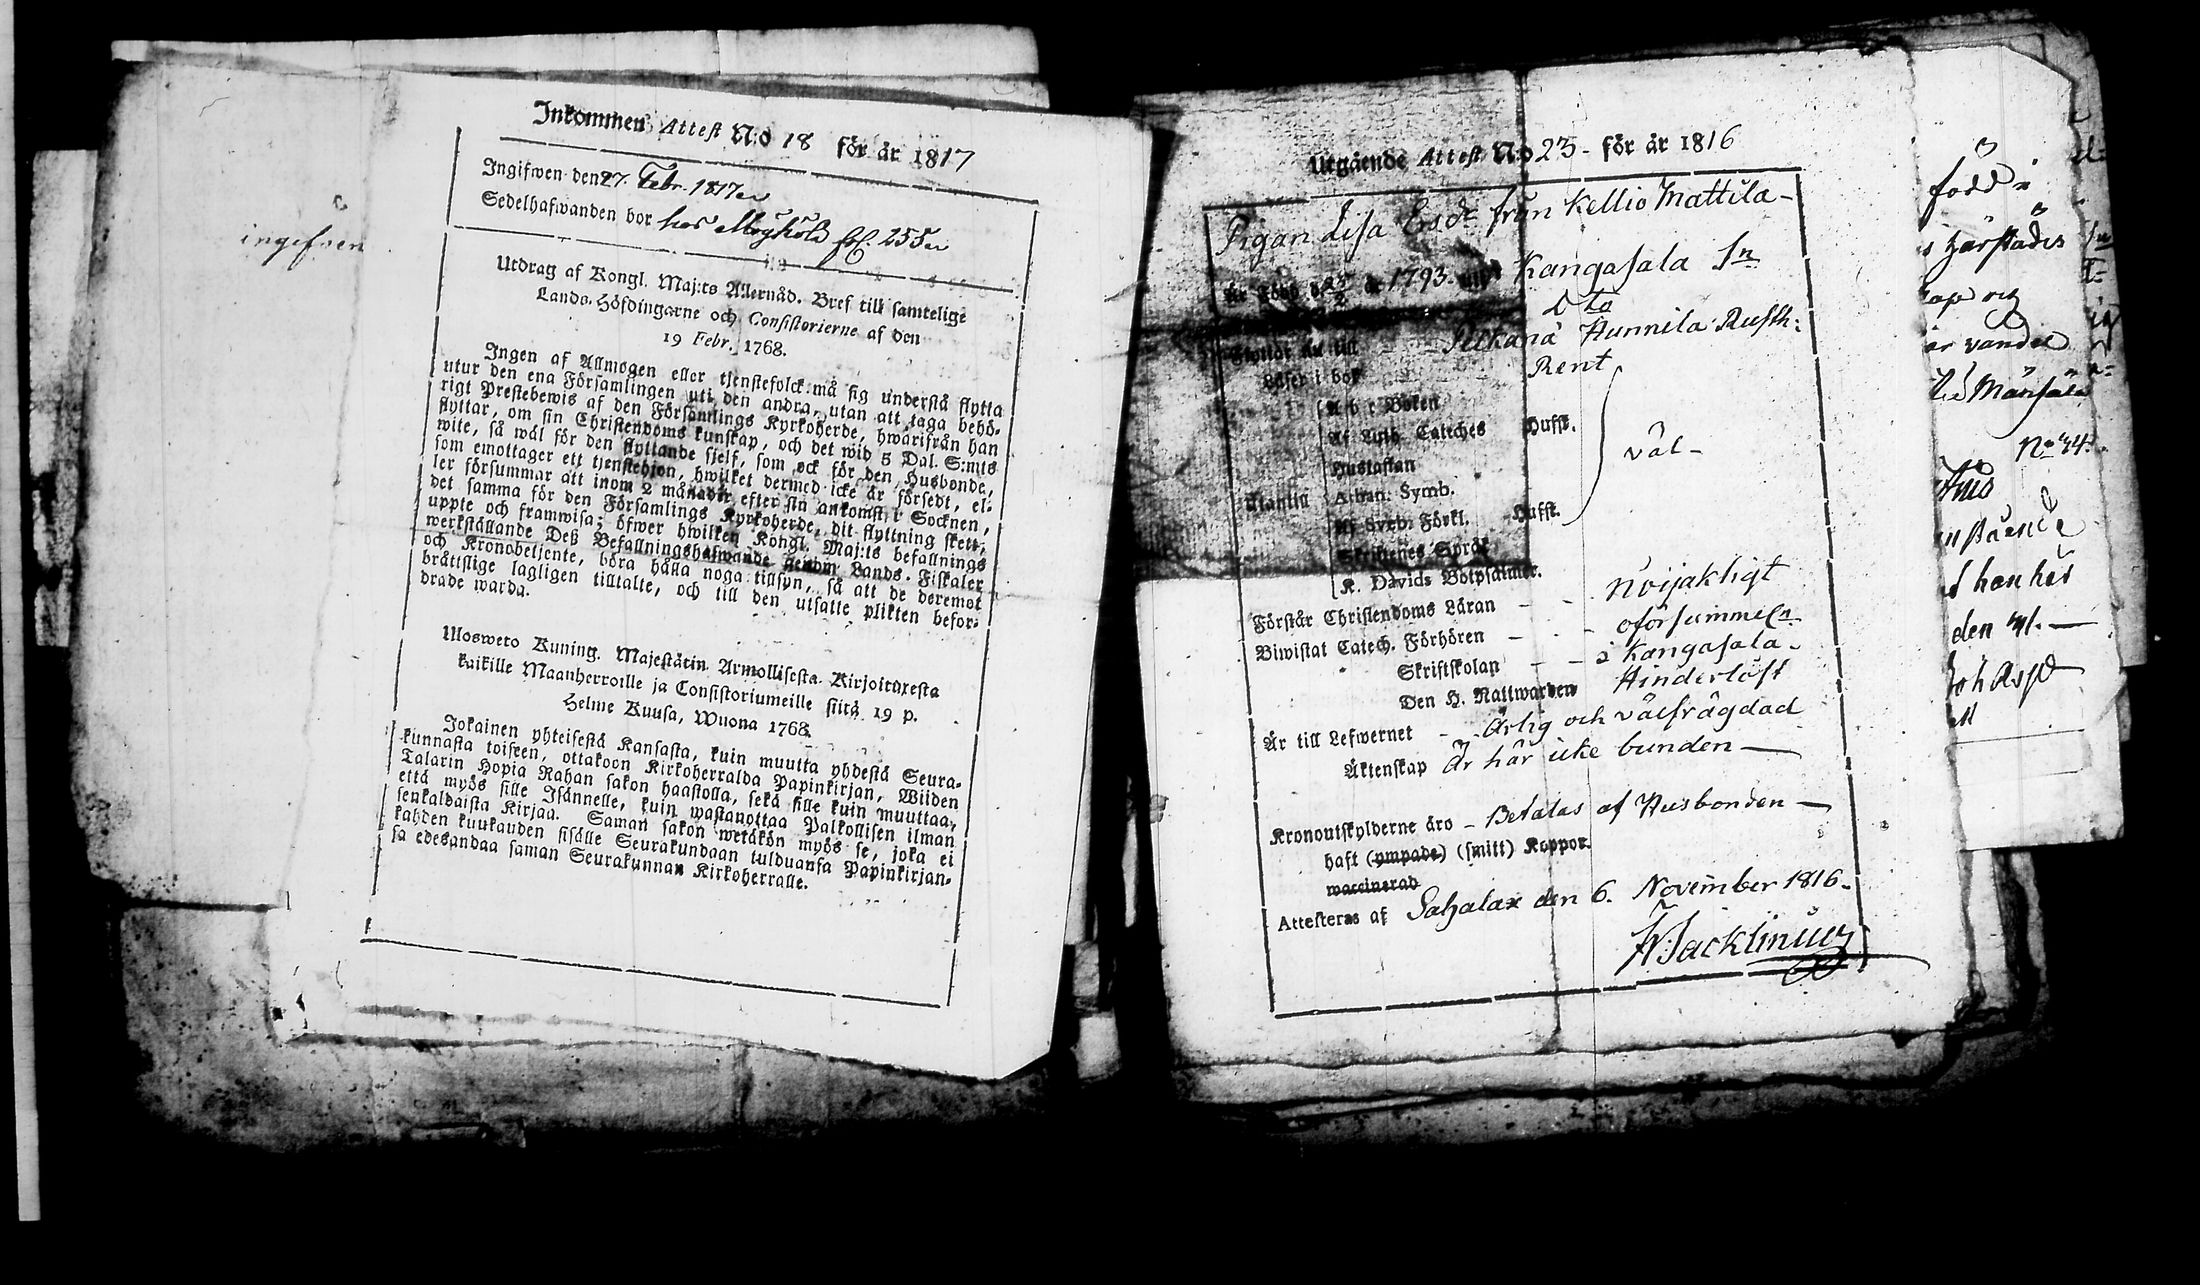 ingifven
Inkommen Attest N:o 18 för år 1817
Ingifwen den 27. Febr. 1817
Sedelhafwanden bor hos fol. 255
Utdrag af Kongl. Maj:ts Allernåd. Bref till samtelige
Lands-Höfdingarne och Consistorierne af den
19 Febr. 1768.
Ingen af Allmogen eller tjenstefolck må sig understå flytta
utur den ena Församlingen uti den andra, utan att taga behö-
rigt Prestebewis af den Församlings Kyrkoherde, hwarifrån han
flyttar, om sin Christendoms kunskap, och det wid 5 Dal. S:mts
wite, så wäl för den flyttande sjelf, som ock för den Husbonde,
som emottager ett tjenstehjon, hwilket dermed icke är försedt, el-
ler försummar att inom 2 månader efter sin ankomst i Socknen,
det samma för den Församlings Kyrkoherde, dit flyttning skett,
uppte och framwisa; öfwer hwilken Kongl. Maj:ts befallnings
werkställande Deß Befallningshafwande genom Lands-Fiskaler
och Kronobetjente, böra hålla noga tillsyn, så att de deremot
bråttslige lagligen tilltalte, och till den utsatte plikten befor-
drade warda.
Ulosweto Kuning. Majestätin Armollisesta Kirjoituxesta
kaikille Maanherroille ja Consistoriumeille siitä 19 p.
Helme Kuusa, Wuona 1768.
Jokainen yhteisestä Kansasta, kuin muutta yhdestä Seura-
kunnasta toiseen, ottakoon Kirkoherralda Papinkirjan, Wiiden
Talarin Hopia Rahan sakon haastolla, sekä sille kuin muuttaa,
että myös sille Isännelle, kuin wastanottaa Palkollisen ilman
senkaldaista Kirjaa. Saman sakon wetäkön myös se, joka ei
kahden kuukauden sisälle Seurakundaan tulduansa Papinkirjan-
sa edesandaa saman Seurakunnan Kirkoherralle.
Utgående Attest N:o 23 - för år 1816
Pigan Lisa Ersdr från Kellio Mattila -
Är född d 25/2 år 1793. uti Kangasala Sn
Dto
Flyttar nu till - - Hunnila Rusth:
Läser i bok Rent
A b c Boken
Af Luth. Cateches Hufst.
Hustaflan
Utantill Athan. Symb. väl -
Af Sveb. Förkl. Hufst.
Skriftenes Språk
K. Davids Botpsalmer.
Förstår Christendoms Läran - - Nöijakligt
Biwistat Catech. Förhören - - oförsummeln
Skriftskolan - - i Kangasala -
Den H. Nattwarden Hinderlöst
Är till Lefwernet - Ärlig och välfrägdad
Äktenskap Är här icke bunden -
Kronoutskylderne äro - Betalas af Husbonden -
haft (ympade) (smitt) Koppor.
waccinerad
Attesteras af Sahalax den 6. November 1816.
född
den